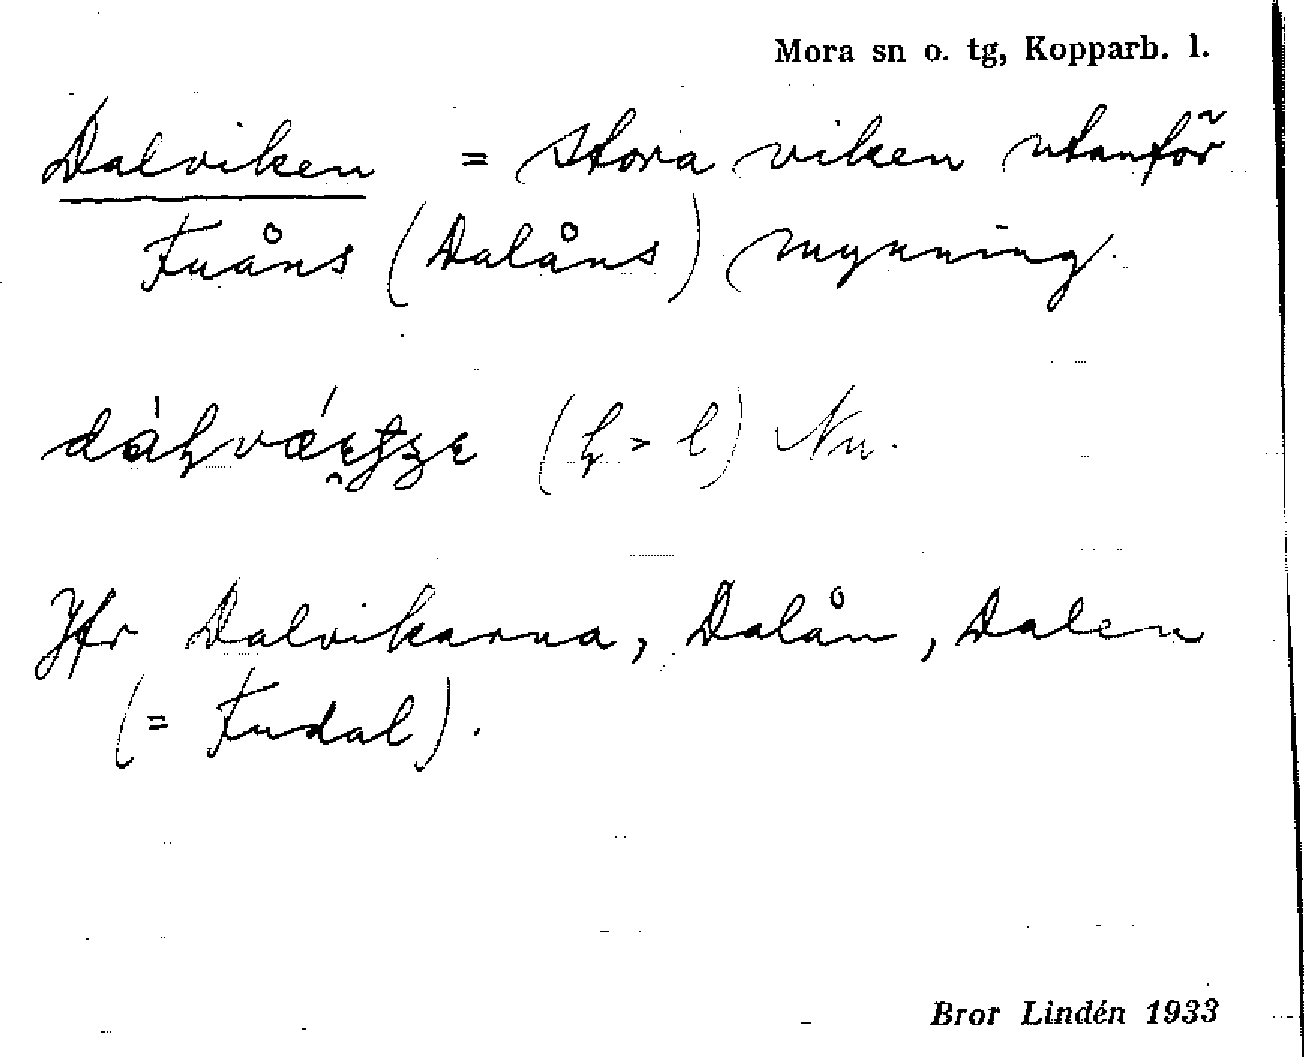 Mora sn o. tg, Kopparb. l.
Dalviken = stora viken utanför
Fuåns (Dalåns) mynning.
(ɧ > l) Nu.
Jfr Dalvikarna, Dalån, Dalen
(= Fudal).
Bror Lindén 1933